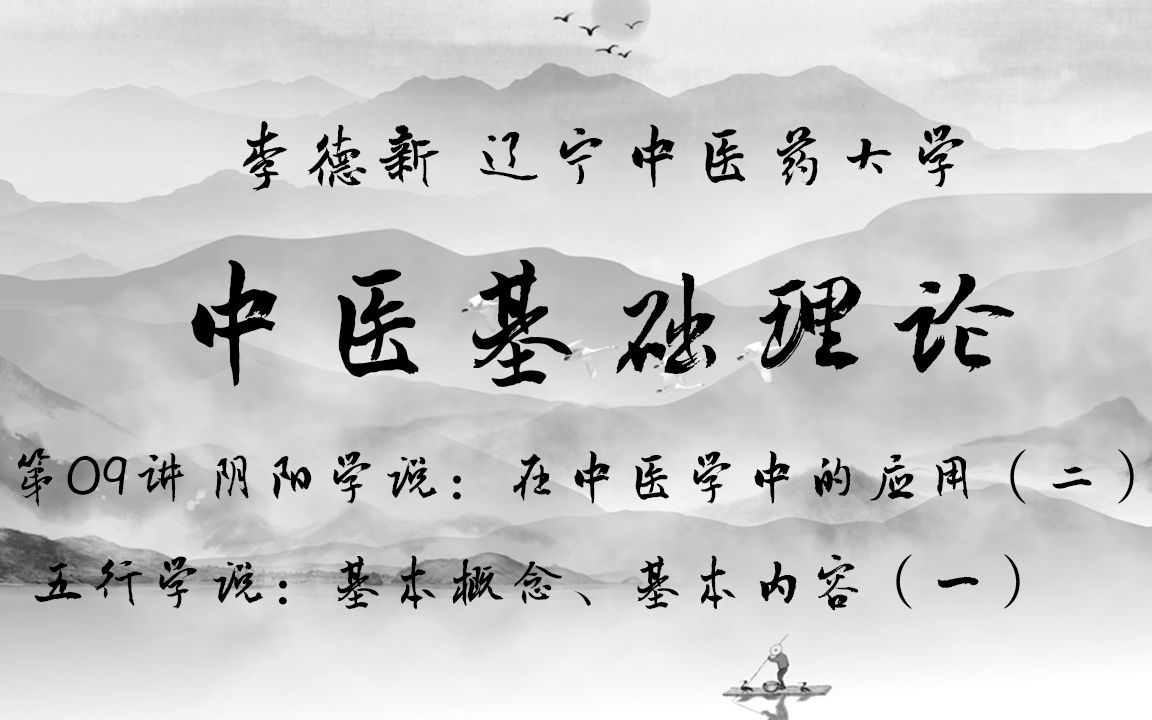 李德新 辽宁中医药大学
中医基础理论
第09讲 阴阳学说：在中医学中的应用（二）
五行学说：基本概念、基本内容（一）